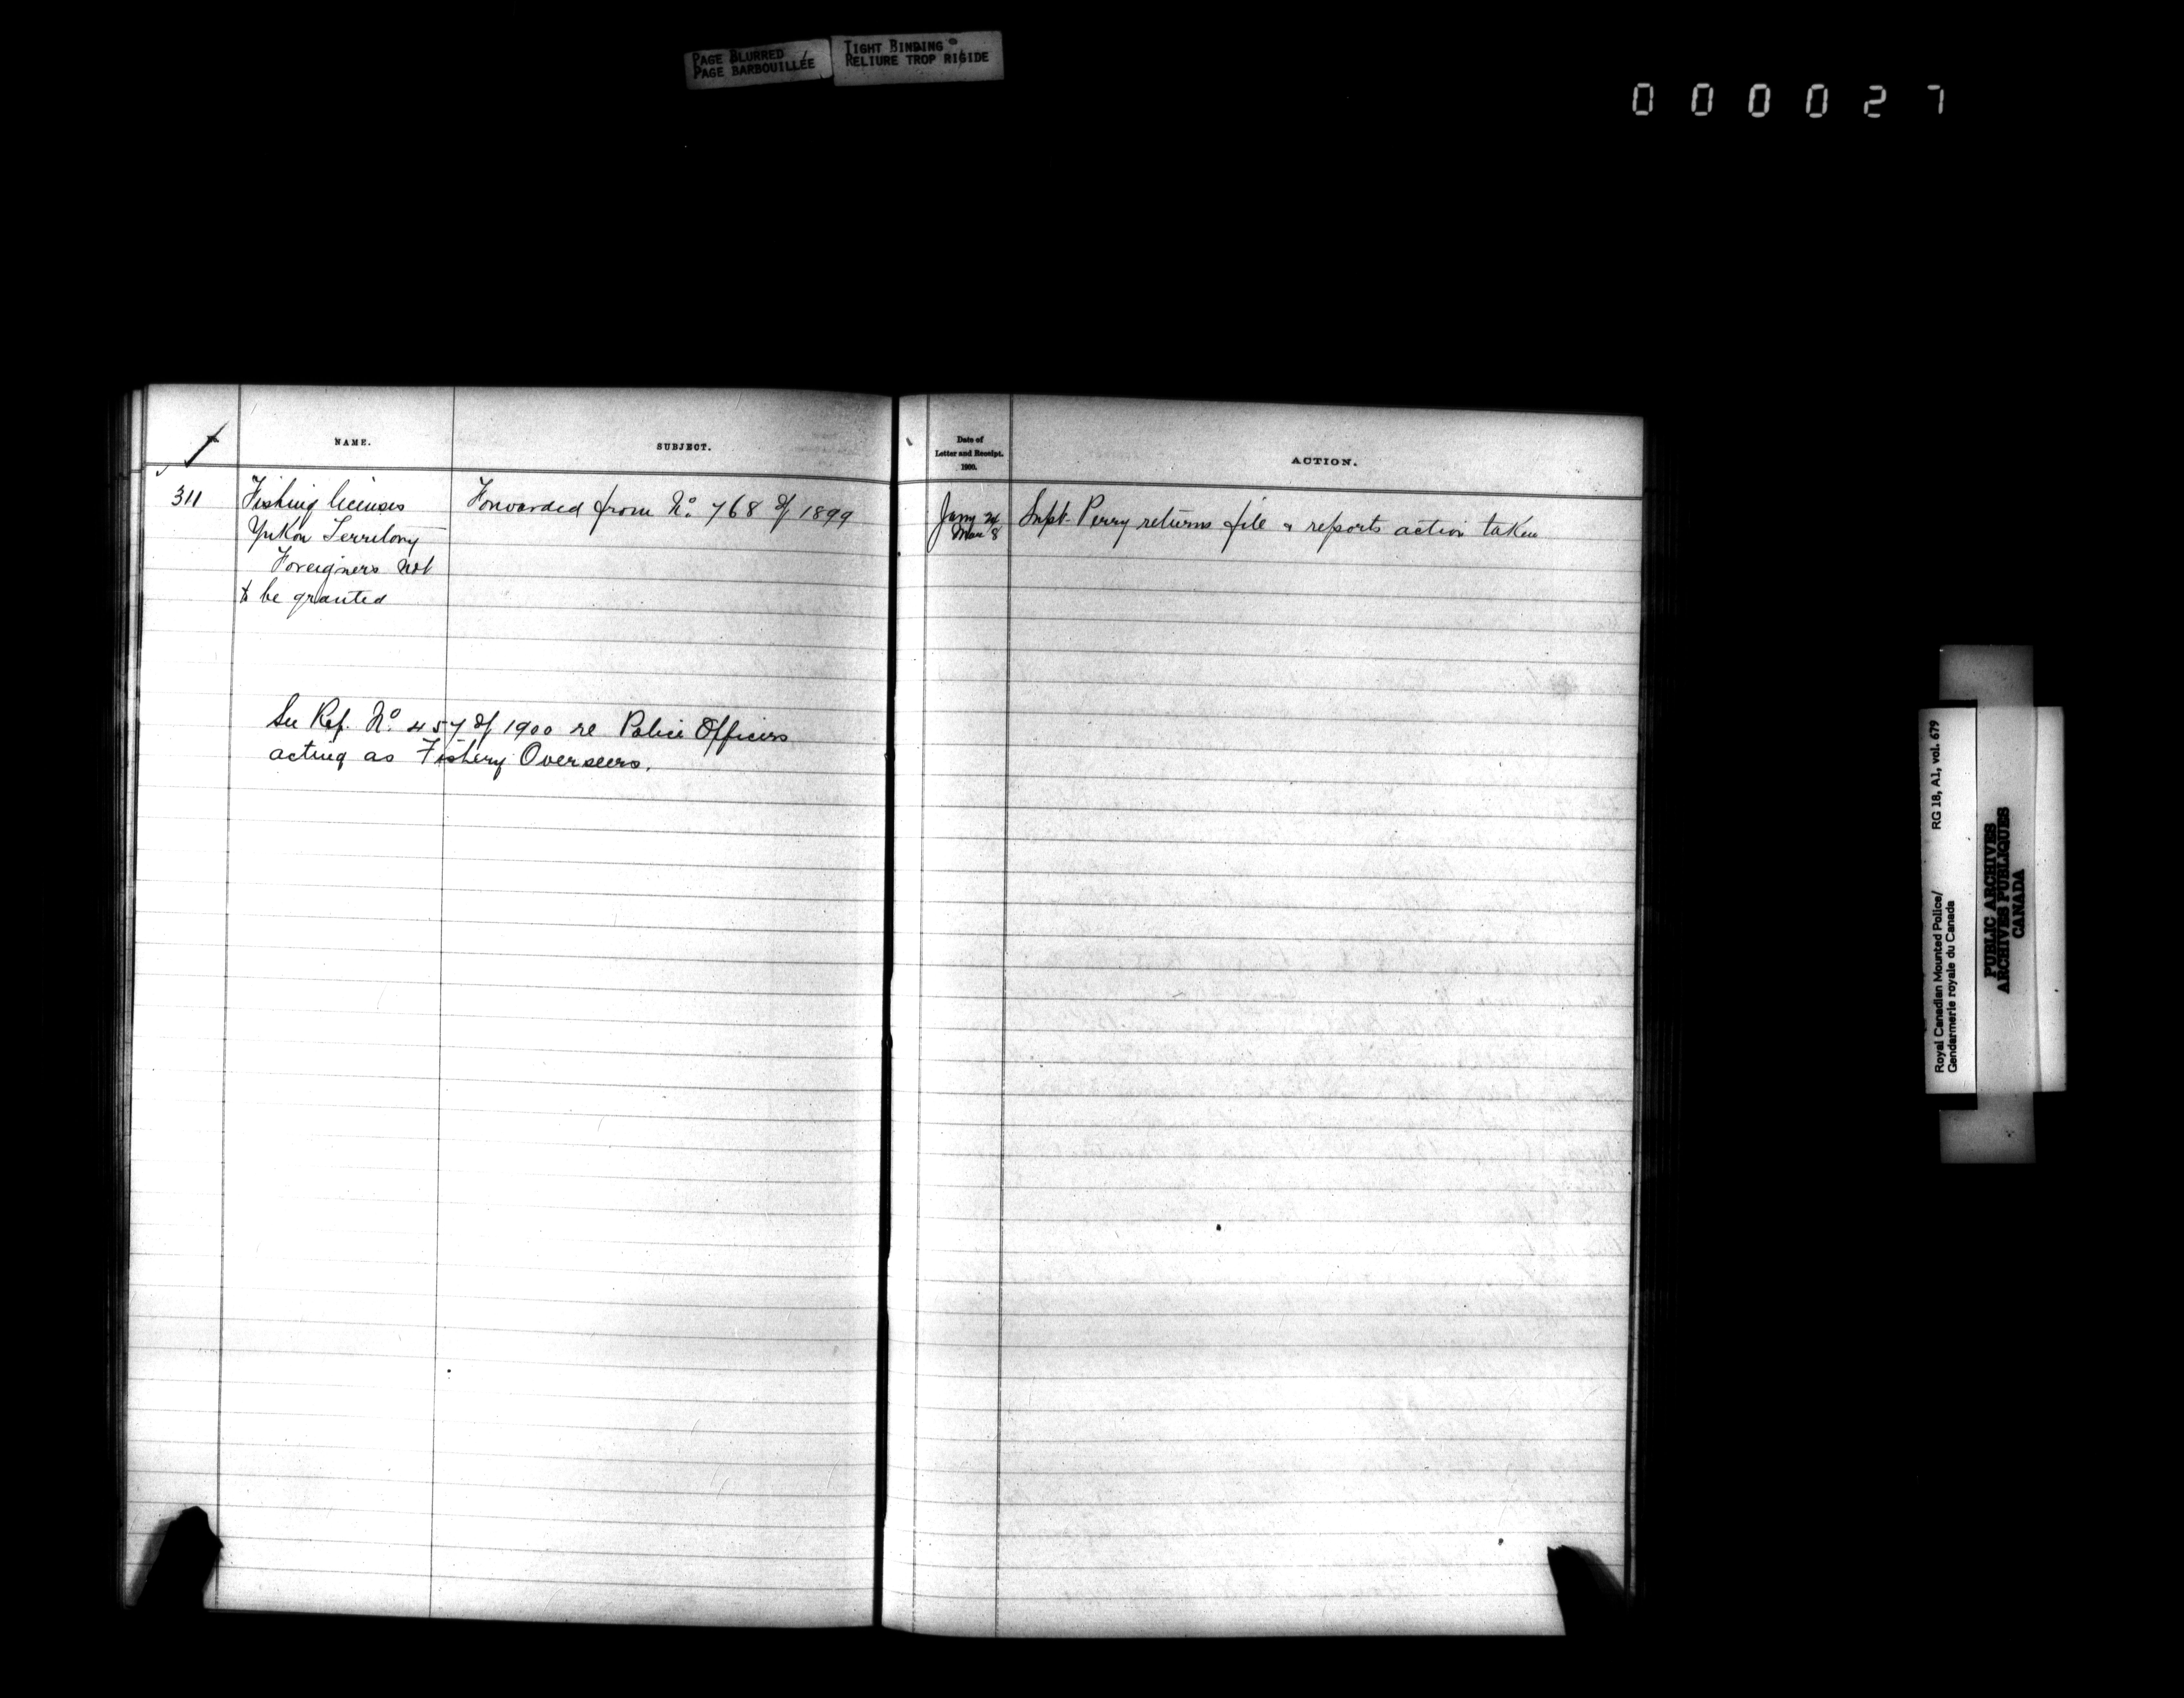 PAGE BLURRED
PAGE BARBOUILLÉE
TIGHT BINDING
RELIURE TROP RIGIDE
000027
NAME.
SUBJECT.
311
Fishing licenses
Yukon Territory
Foreigners not
to be granted
Forwarded from No. 768 of 1899
See Ref. No. 457 of 1900 re Police Officers
acting as Fishery Overseers.
Date of
Letter and Receipt.
1900.
ACTION.
Jany 24
Mar 8
Supt. Perry returns file & reports action taken
Royal Canadian Mounted Police/ RG 18, A1, vol. 679
Gendarmerie royale du Canada
PUBLIC ARCHIVES
ARCHIVES PUBLIQUES
CANADA